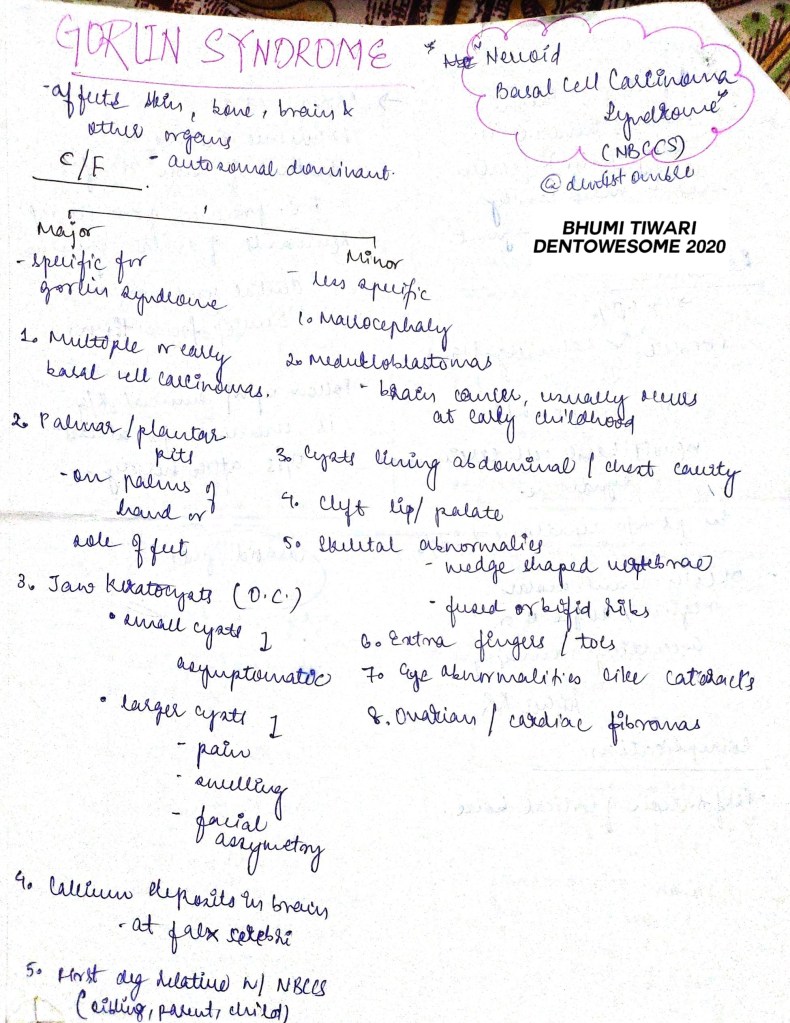 GORLIN SYNDROME
* "Nevoid
Basal Cell Carcinoma
Syndrome"
(NBCCS)
@dentist ouible
BHUMI TIWARI
DENTOWESOME 2020
- affects skin, bone, brain &
other organs
C/F - autosomal dominant.
Major
- specific for
gorlin syndrome
1. Multiple or early
basal cell carcinomas.
2. Palmar/plantar
pits
- on palms of
hand or
sole of feet
3. Jaw keratocysts (O.C.)
• small cysts
asymptomatic
• larger cysts
- pain
- swelling
- facial
assymetry
4. Calcium deposits in brain
- at falx cerebri
5. First deg relative w/ NBCCS
(sibling, parent, child)
Minor
- less specific
1. Macrocephaly
2. medulloblastomas
- brain cancer, usually occurs
at early childhood
3. Cysts lining abdominal / chest cavity
4. Clyft lip/ palate
5. Skeletal abnormalies
- wedge shaped vertebrae
- fused or bifid ribs
6. Extra fingers / toes
7. Eye abnormalities like cataracts
8. Ovarian / cardiac fibromas